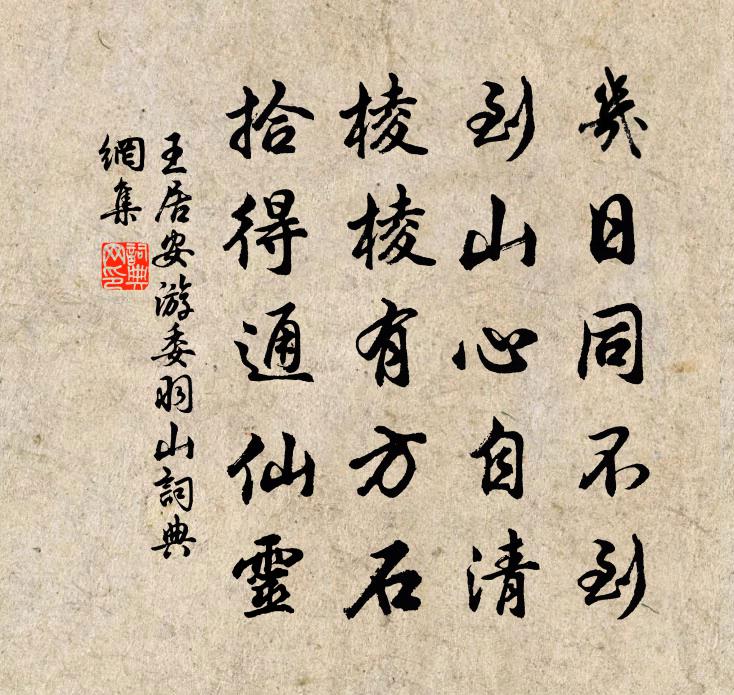 幾日同不到
到山心自清
棱棱有方石
拾得通仙靈
王居安游委羽山詞典
網集
詞典
网印